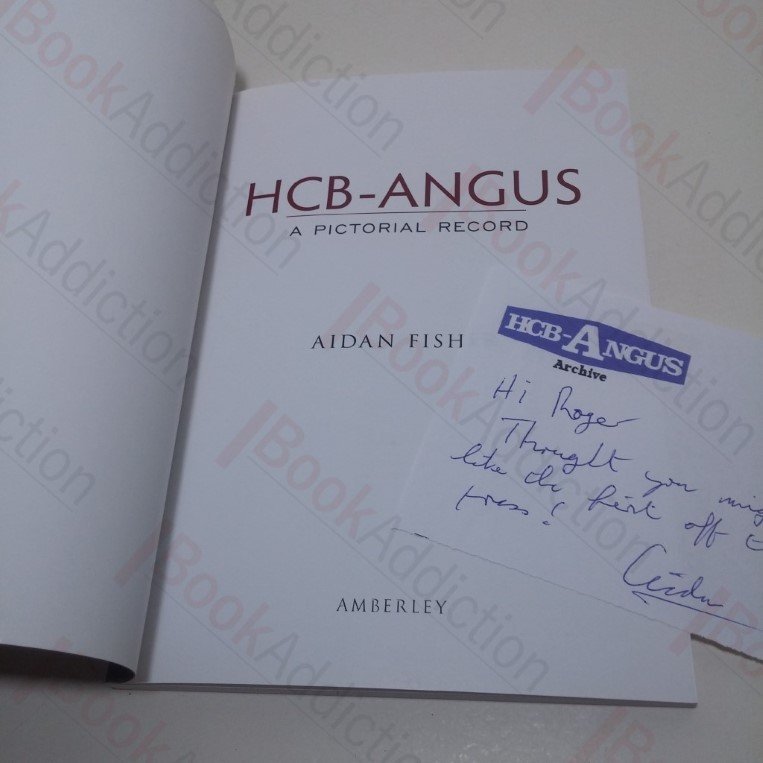 HCB-ANGUS
A PICTORIAL RECORD
AIDAN FISH
AMBERLEY
HCB-ANGUS
Archive
Hi Roger
Thought you mig
like the first off t
press!
Aidan
BookAddiction